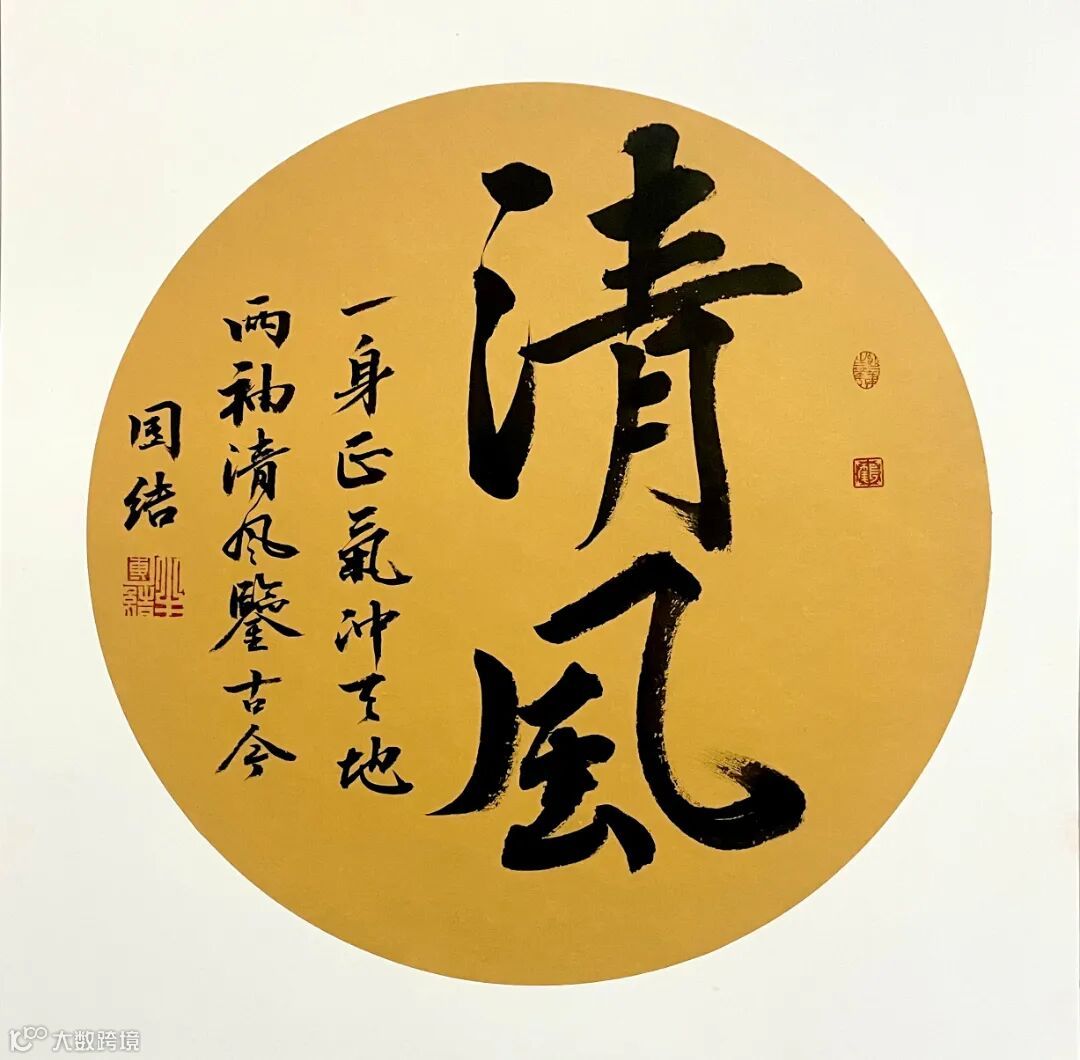 清風
一身正氣沖天地
两袖清风鑒古今
国结
大数跨境